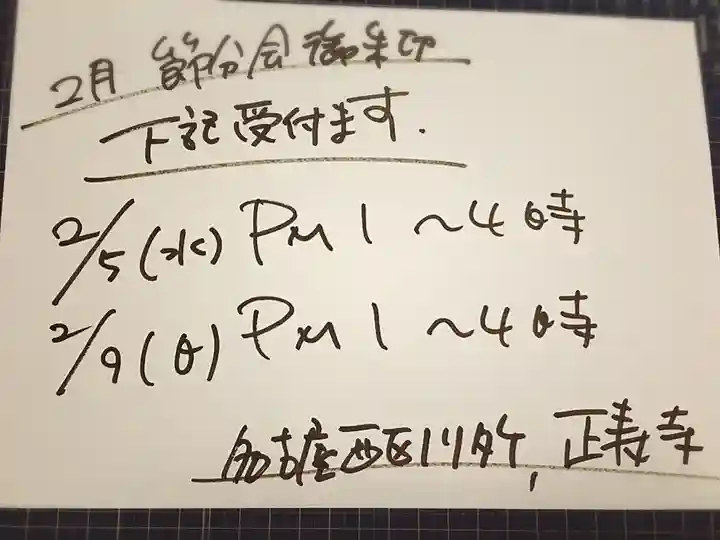 2月 節分会御朱印
下記受付ます.
2/5(水) PM 1 〜4時
2/9(日) PM 1 〜4時
名古屋西区 正寿寺